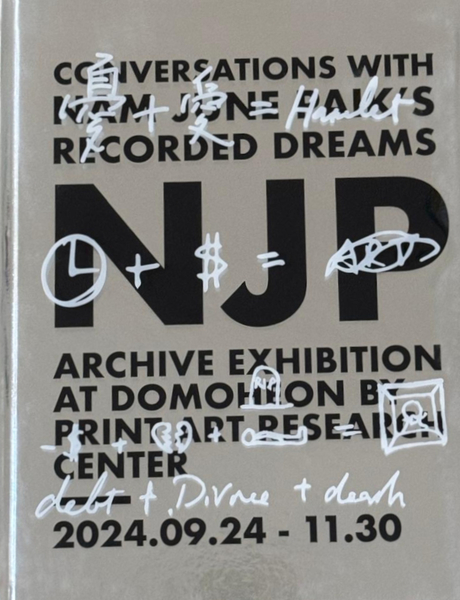 CONVERSATIONS WITH
NAM JUNE PAIK'S
+ = Hamlet
RECORDED DREAMS
NJP
+ $ =
ARCHIVE EXHIBITION
AT DOMOHEON BY
RIP
PRINT ART RESEARCH
-$ + + =
CENTER
debt + Divorce + death
2024.09.24 - 11.30